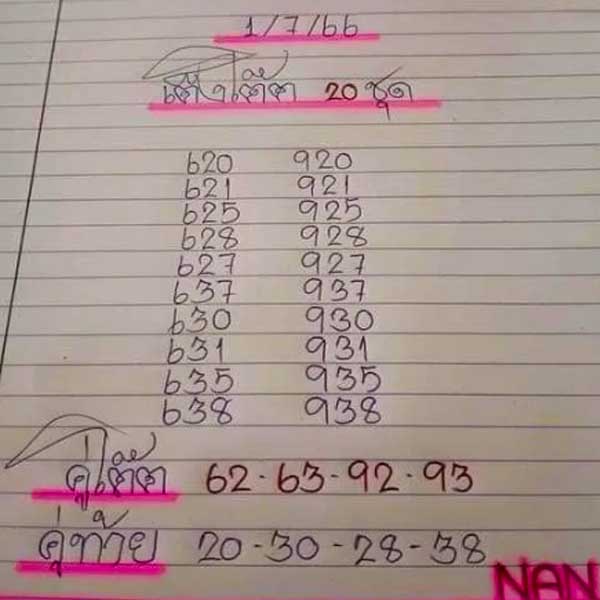 1/7/66
เต็งโต๊ด 20 ชุด
620 920
621 921
625 925
628 928
627 927
637 937
630 930
631 931
635 935
638 938
คู่โต๊ด 62-63-92-93
คู่ท้าย 20-30-28-38
NAN